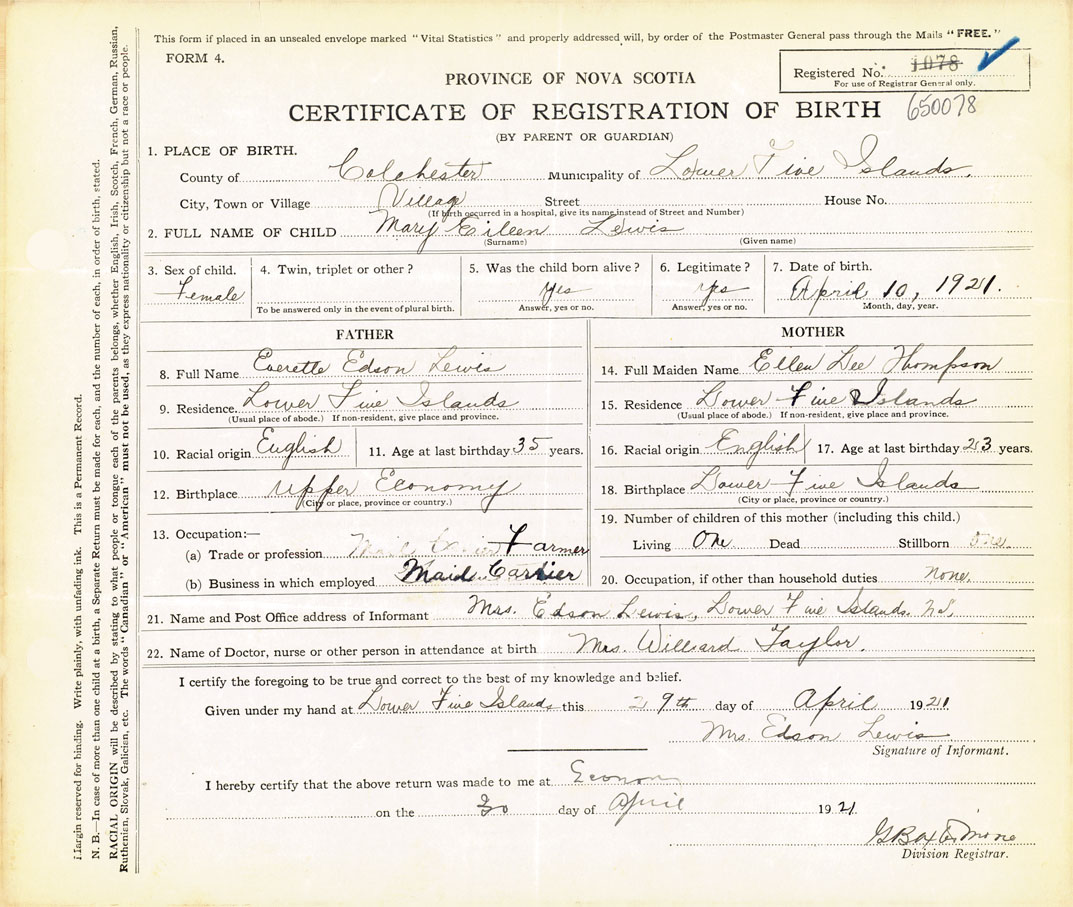 This form if placed in an unsealed envelope marked "Vital Statistics" and properly addressed will, by order of the Postmaster General pass through the Mails "FREE."
FORM 4.
Registered No. 1078
For use of Registrar General only.
PROVINCE OF NOVA SCOTIA
CERTIFICATE OF REGISTRATION OF BIRTH 650078
(BY PARENT OR GUARDIAN)
1. PLACE OF BIRTH.
County of Colchester Municipality of Lower Five Islands.
City, Town or Village Village Street House No.
(If birth occurred in a hospital, give its name instead of Street and Number)
2. FULL NAME OF CHILD Mary Eileen Lewis
(Surname) (Given name)
3. Sex of child. Female
4. Twin, triplet or other?
To be answered only in the event of plural birth.
5. Was the child born alive?
yes
Answer, yes or no.
6. Legitimate?
yes
Answer, yes or no.
7. Date of birth.
April 10, 1921.
Month, day, year.
FATHER
8. Full Name Everette Edson Lewis
9. Residence. Lower Five Islands
(Usual place of abode.) If non-resident, give place and province.
10. Racial origin English 11. Age at last birthday 35 years.
12. Birthplace Upper Economy
(City or place, province or country.)
13. Occupation:—
(a) Trade or profession Farmer
(b) Business in which employed Mail Carrier
MOTHER
14. Full Maiden Name Ellen Dee Thompson
15. Residence Lower Five Islands
(Usual place of abode.) If non-resident, give place and province.
16. Racial origin English 17. Age at last birthday 23 years.
18. Birthplace Lower Five Islands
(City or place, province or country.)
19. Number of children of this mother (including this child.)
Living One Dead Stillborn
20. Occupation, if other than household duties none.
21. Name and Post Office address of Informant Mrs. Edson Lewis, Lower Five Islands. N.S.
22. Name of Doctor, nurse or other person in attendance at birth Mrs. Willard Taylor.
I certify the foregoing to be true and correct to the best of my knowledge and belief.
Given under my hand at Lower Five Islands this 29th day of April 1921
Mrs. Edson Lewis
Signature of Informant.
I hereby certify that the above return was made to me at Economy
on the 30 day of April 1921
Division Registrar.
Margin reserved for binding. Write plainly, with unfading ink. This is a Permanent Record.
N. B.—In case of more than one child at a birth, a Separate Return must be made for each, and the number of each, in order of birth, stated.
RACIAL ORIGIN will be described by stating to what people or tongue each of the parents belongs, whether English, Irish, Scotch, French, German, Russian,
Ruthenian, Slovak, Galician, etc. The words "Canadian" or "American" must not be used, as they express nationality or citizenship but not a race or people.